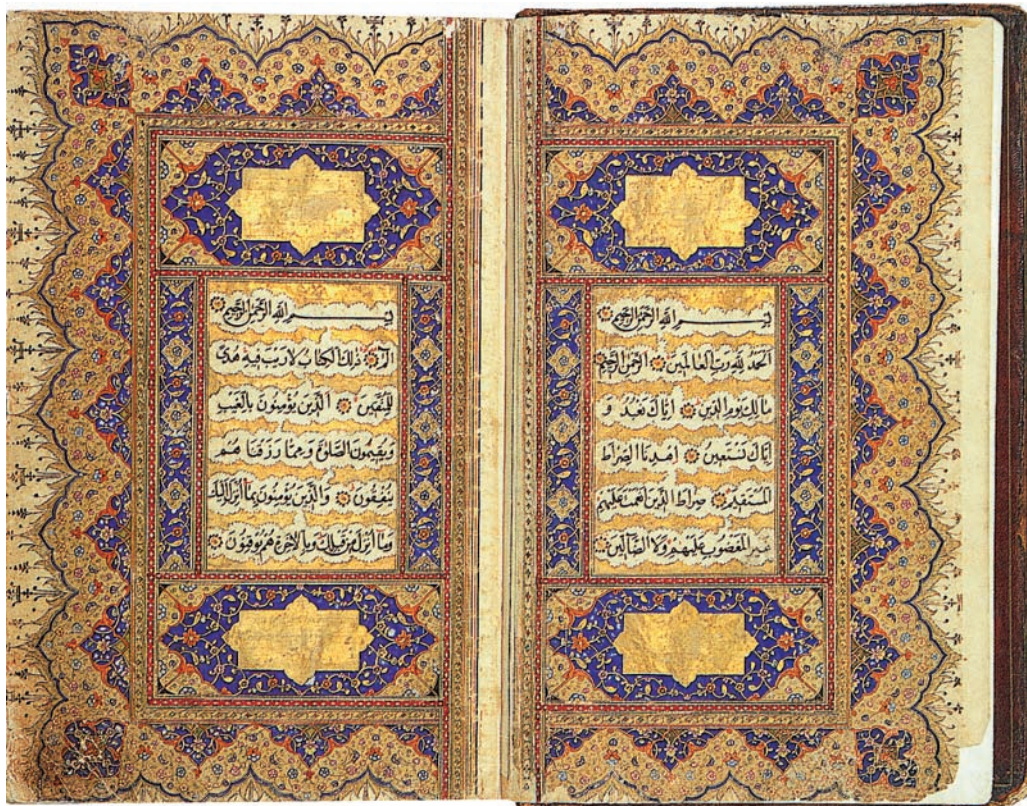 بِسْمِ اللهِ الرَّحْمٰنِ الرَّحِيمِ
اَلْحَمْدُ لِلّٰهِ رَبِّ الْعَالَمِينَ الرَّحْمٰنِ الرَّحِيمِ
مَالِكِ يَوْمِ الدِّينِ اِيَّاكَ نَعْبُدُ وَ
اِيَّاكَ نَسْتَعِينُ اِهْدِنَا الصِّرَاطَ
الْمُسْتَقِيمَ صِرَاطَ الَّذِينَ اَنْعَمْتَ عَلَيْهِمْ
غَيْرِ الْمَغْضُوبِ عَلَيْهِمْ وَلَا الضَّالِّينَ
بِسْمِ اللهِ الرَّحْمٰنِ الرَّحِيمِ
الٓمٓ ذٰلِكَ الْكِتَابُ لَا رَيْبَ فِيهِ هُدًى
لِلْمُتَّقِينَ اَلَّذِينَ يُؤْمِنُونَ بِالْغَيْبِ
وَيُقِيمُونَ الصَّلٰوةَ وَمِمَّا رَزَقْنَا هُمْ
يُنْفِقُونَ وَالَّذِينَ يُؤْمِنُونَ بِمَا اُنْزِلَ اِلَيْكَ
وَمَا اُنْزِلَ مِنْ قَبْلِكَ وَبِالْاٰخِرَةِ هُمْ يُوقِنُونَ